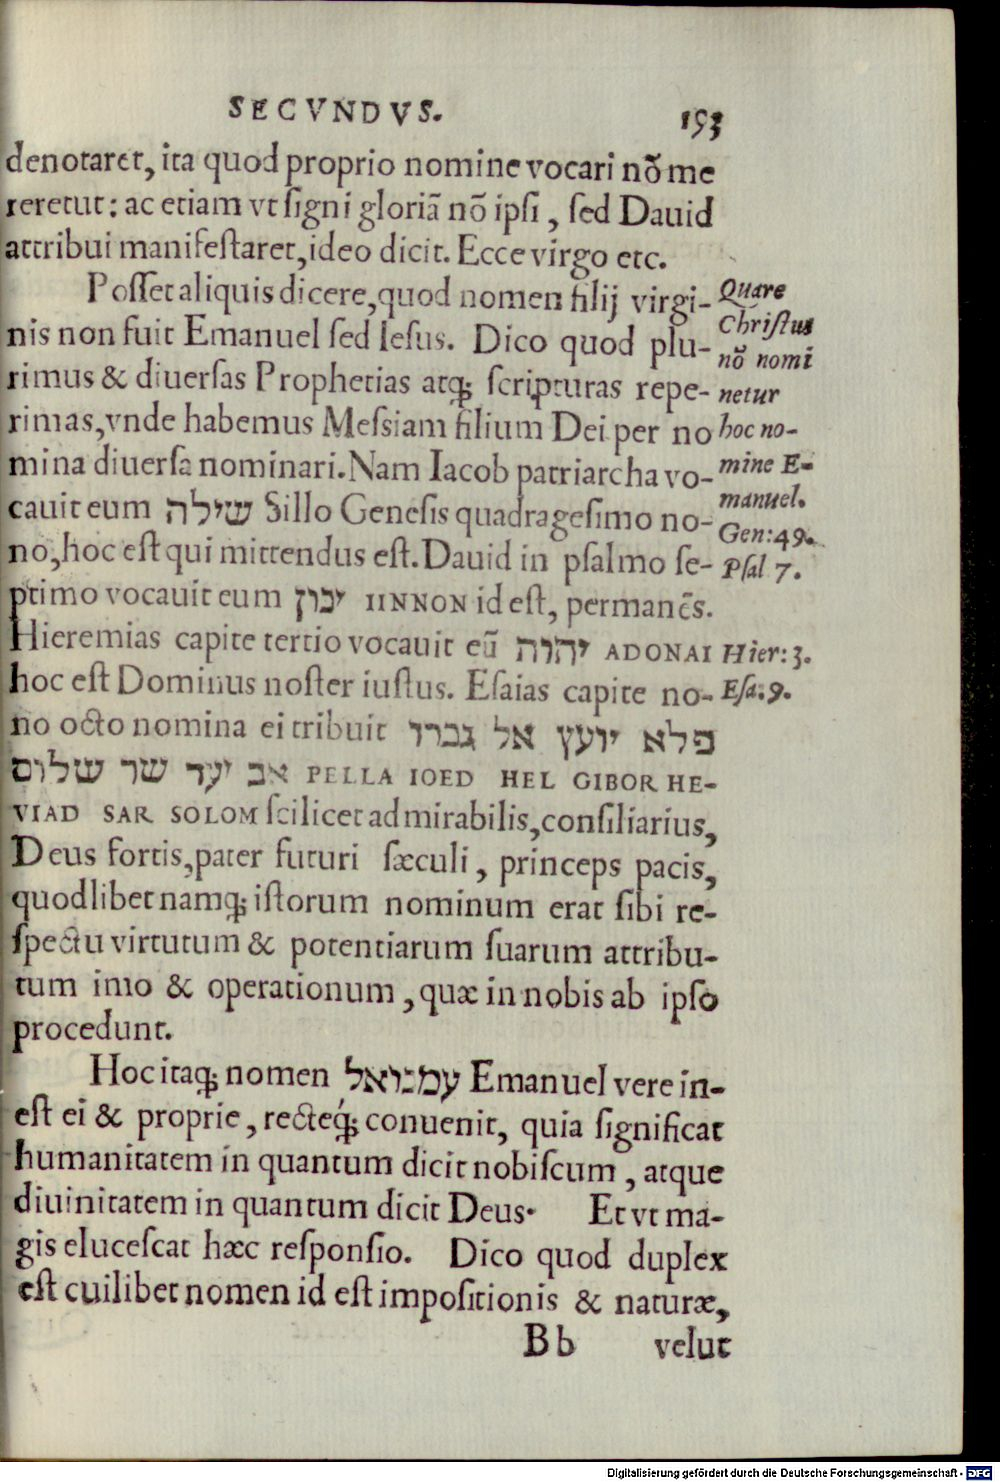 SECVNDVS.
193
denotaret, ita quod proprio nomine vocari nõ me
reretut: ac etiam vt signi gloriã nõ ipsi, sed Dauid
attribui manifestaret, ideo dicit. Ecce virgo etc.
Posset aliquis dicere, quod nomen filij virgi-
nis non fuit Emanuel sed Iesus. Dico quod plu-
rimus & diuersas Prophetias atq; scripturas repe-
rimas, vnde habemus Messiam filium Dei per no
mina diuersa nominari. Nam Iacob patriarcha vo-
cauit eum שילה Sillo Genesis quadragesimo no-
no, hoc est qui mittendus est. Dauid in psalmo se-
ptimo vocauit eum ינון IINNON id est, permanẽs.
Hieremias capite tertio vocauit eũ יהוה ADONAI
hoc est Dominus noster iustus. Esaias capite no-
no octo nomina ei tribuit פלא יועץ אל גברו
אב יעד שר שלום PELLA IOED HEL GIBOR HE-
VIAD SAR SOLOM scilicet admirabilis, consiliarius,
Deus fortis, pater futuri sæculi, princeps pacis,
quodlibet namq; istorum nominum erat sibi re-
spectu virtutum & potentiarum suarum attribu-
tum imo & operationum, quæ in nobis ab ipso
procedunt.
Hoc itaq; nomen עמנואל Emanuel vere in-
est ei & proprie, recteq́; conuenit, quia significat
humanitatem in quantum dicit nobiscum, atque
diuinitatem in quantum dicit Deus. Et vt ma-
gis elucescat hæc responsio. Dico quod duplex
est cuilibet nomen id est impositionis & naturæ,
Bb velut
Quare
Christus
nõ nomi
netur
hoc no-
mine E-
manuel.
Gen: 49.
Psal 7.
Hier: 3.
Esa. 9.
Digitalisierung gefördert durch die Deutsche Forschungsgemeinschaft - DFG